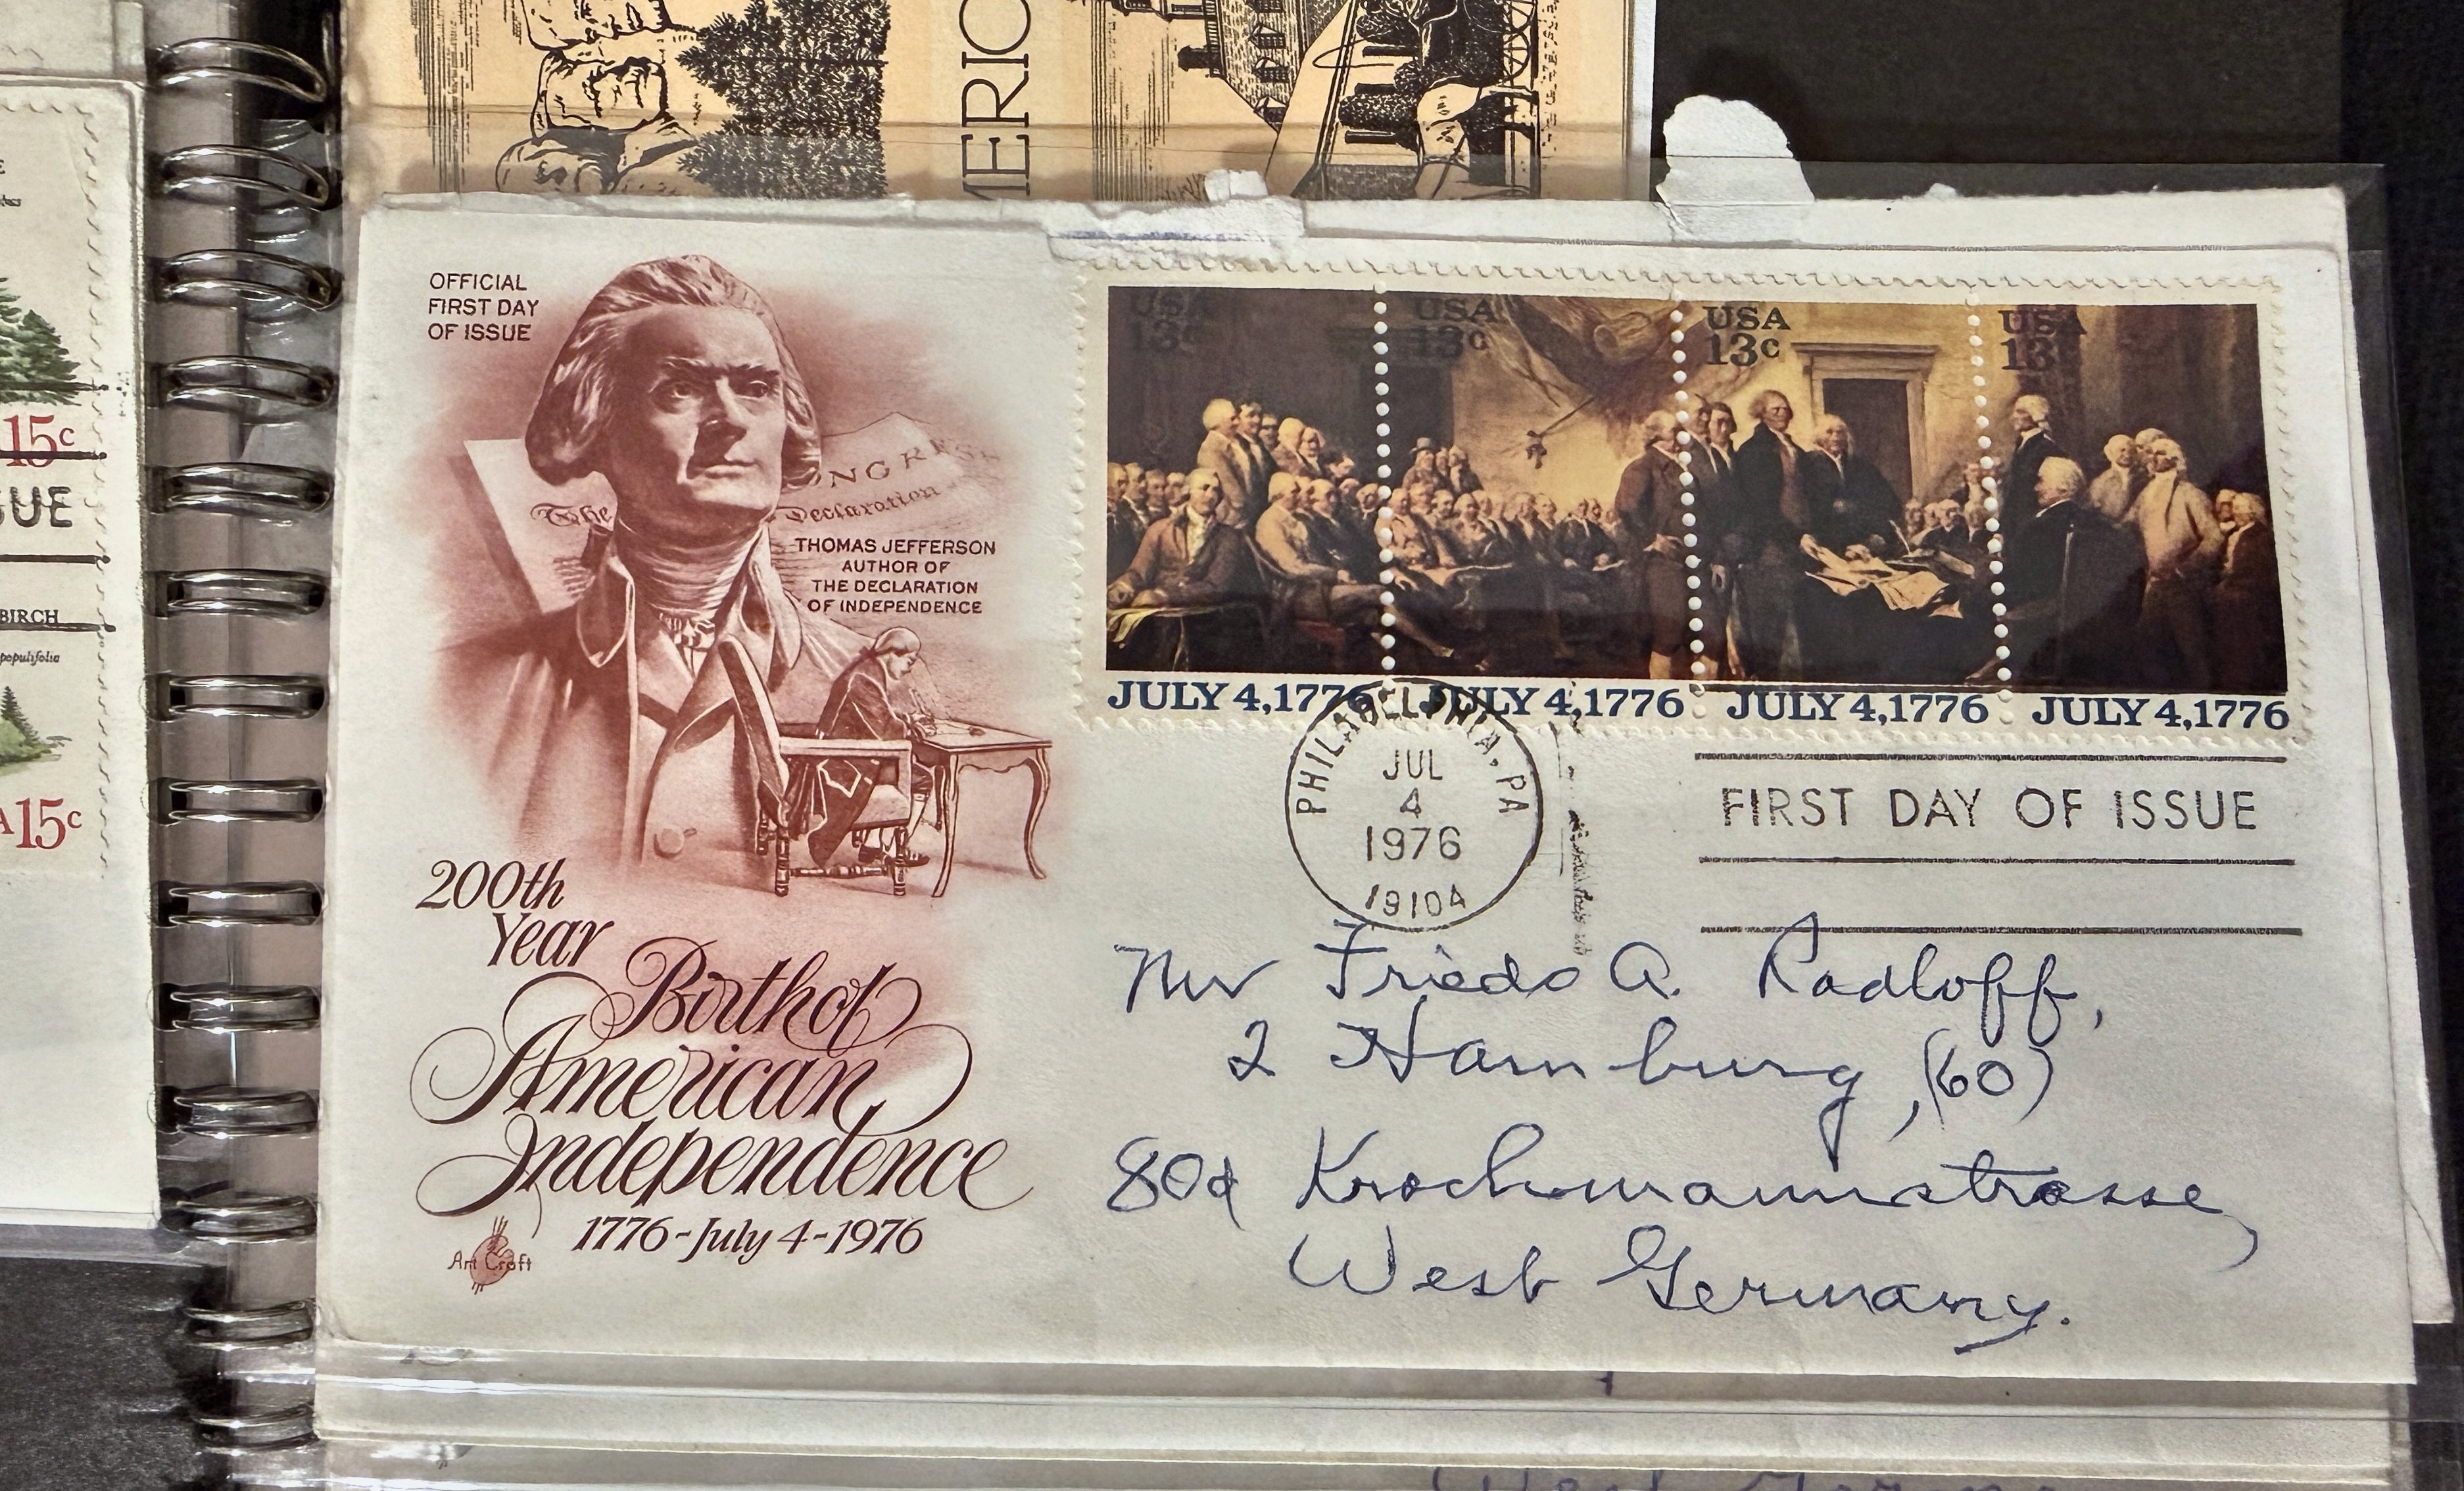 15c
BIRCH
populifolia
15c
OFFICIAL
FIRST DAY
OF ISSUE
The
Declaration
THOMAS JEFFERSON
AUTHOR OF
THE DECLARATION
OF INDEPENDENCE
200th
Year
Birth of
American
Independence
1776-July 4-1976
Art Craft
USA USA USA USA
13c 13c 13c 13c
JULY 4,1776 JULY 4,1776 JULY 4,1776 JULY 4,1776
PHILADELPHIA, PA
JUL
4
1976
19104
FIRST DAY OF ISSUE
Mr Friedo A. Radloff,
2 Hamburg, (60)
80d Krochmannstrasse,
West Germany.